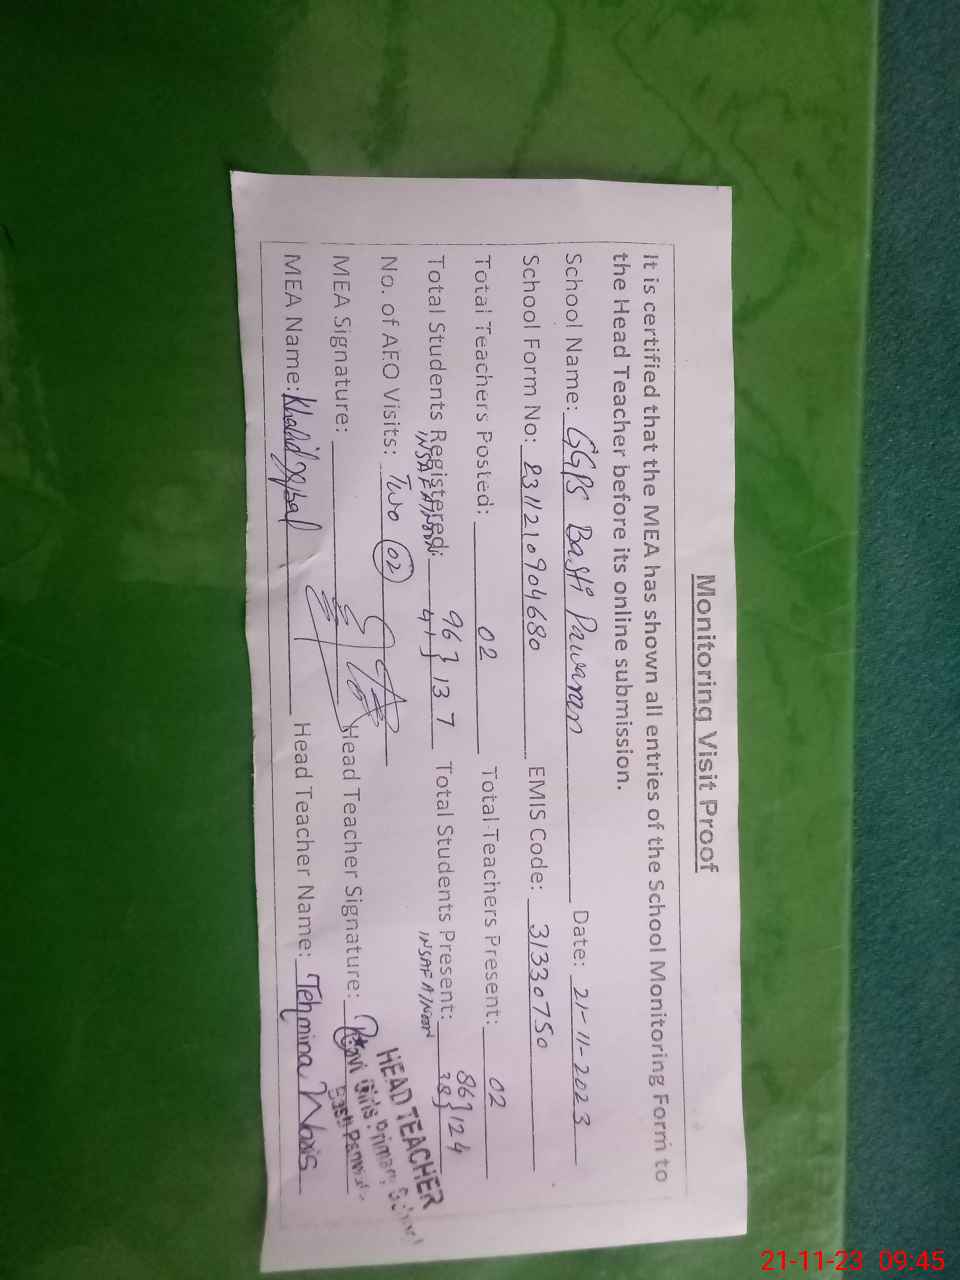 Monitoring Visit Proof
It is certified that the MEA has shown all entries of the School Monitoring Form to
the Head Teacher before its online submission.
School Name: GGPS Basti Pawaran Date: 21-11-2023
School Form No: 8311210904680 EMIS Code: 31330750
Total Teachers Posted: 02 Total Teachers Present: 02
Total Students Registered: 96 } 137 Total Students Present: 86 } 124
INSAF AFNOON 41 INSAF A/Noon 38
No. of AEO Visits: Two 02
MEA Signature: Head Teacher Signature:
MEA Name: Khalid Iqbal Head Teacher Name: Tehmina
HEAD TEACHER
Girls Primary School
Basti
21-11-23 09:45